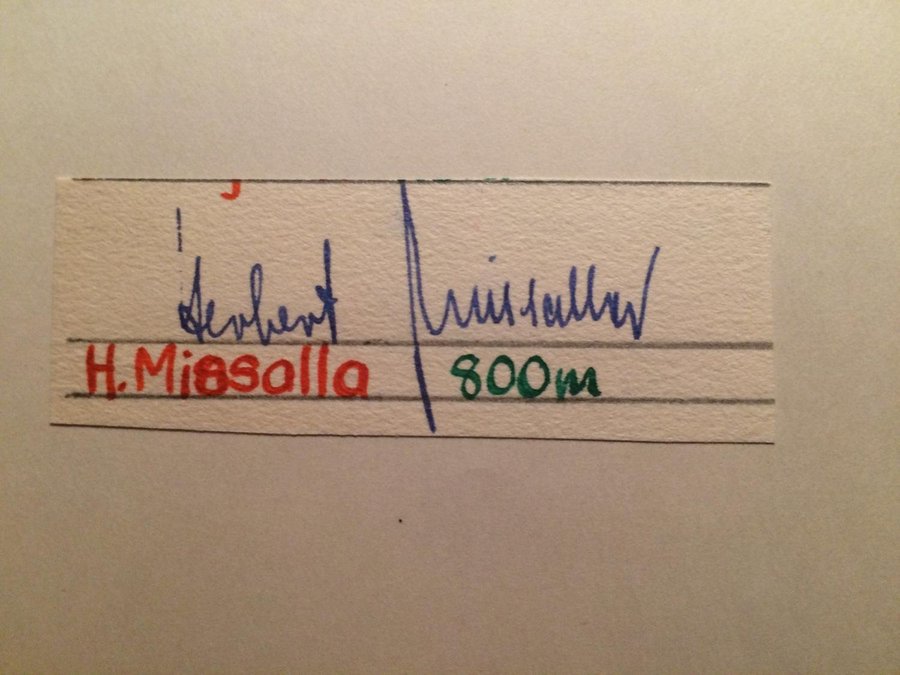 Herbert Missalla
H. Missalla 800m